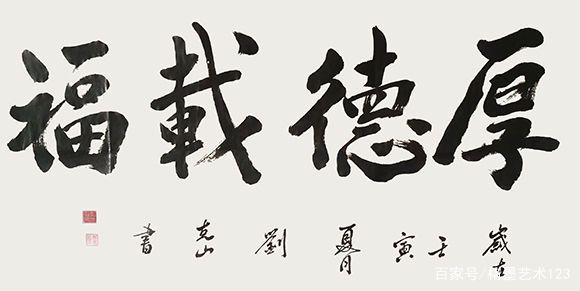 厚德載福
歲在壬寅夏月劉克山書
百家号/墨艺术123